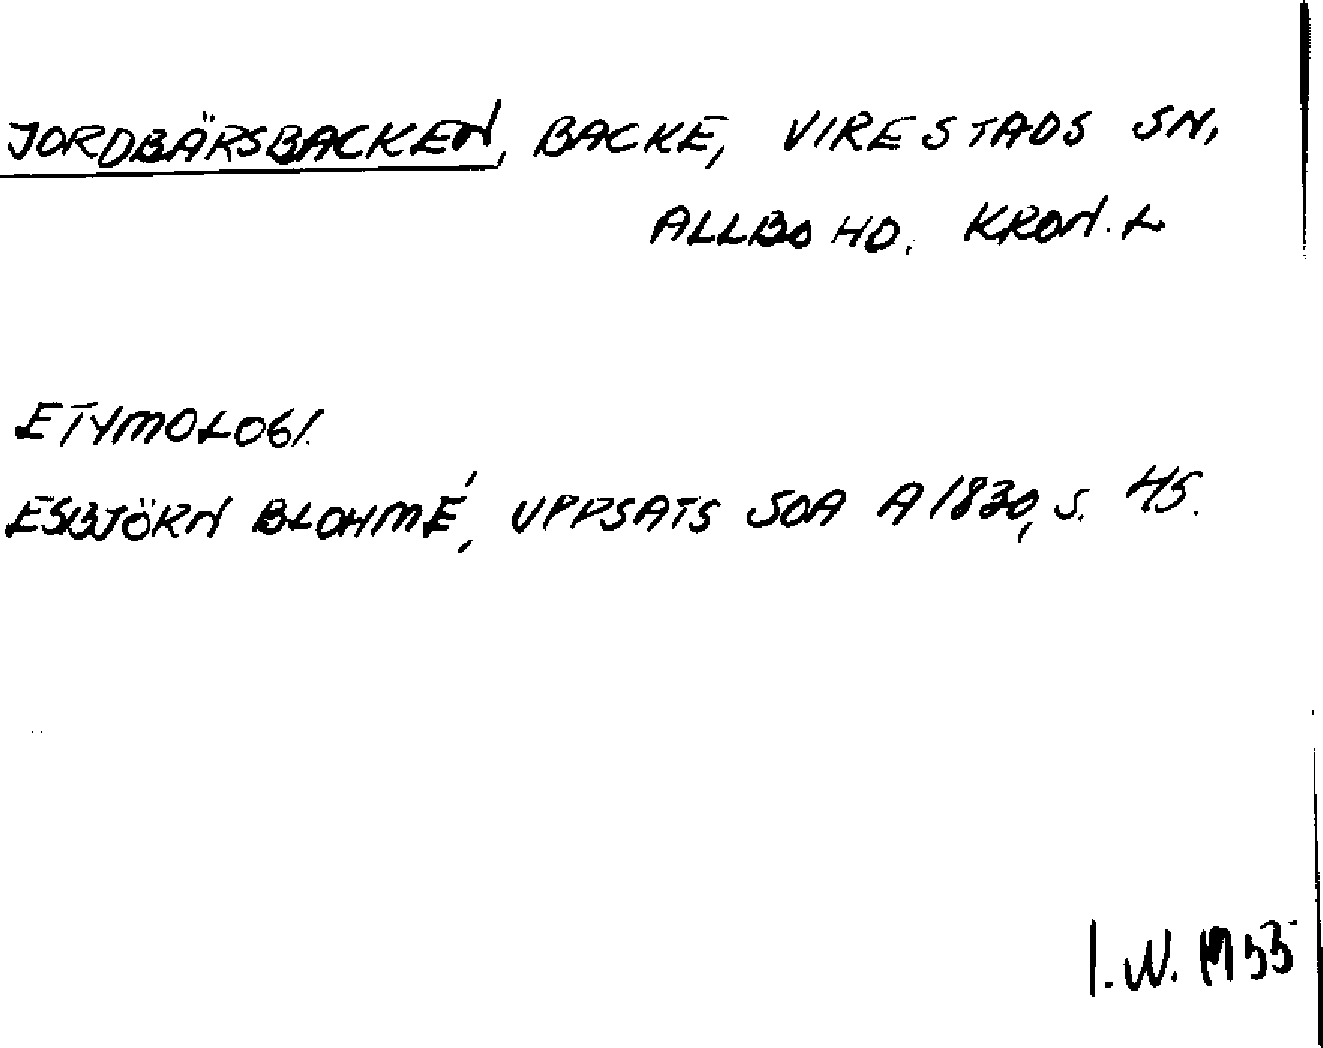 JORDBÄRSBACKEN, BACKE, VIRESTADS SN,
ALLBO HD. KRON. L
ETYMOLOGI.
ESBJÖRN BLOHMÉ, UPPSATS SOA A 1830, S. 45.
I.W.